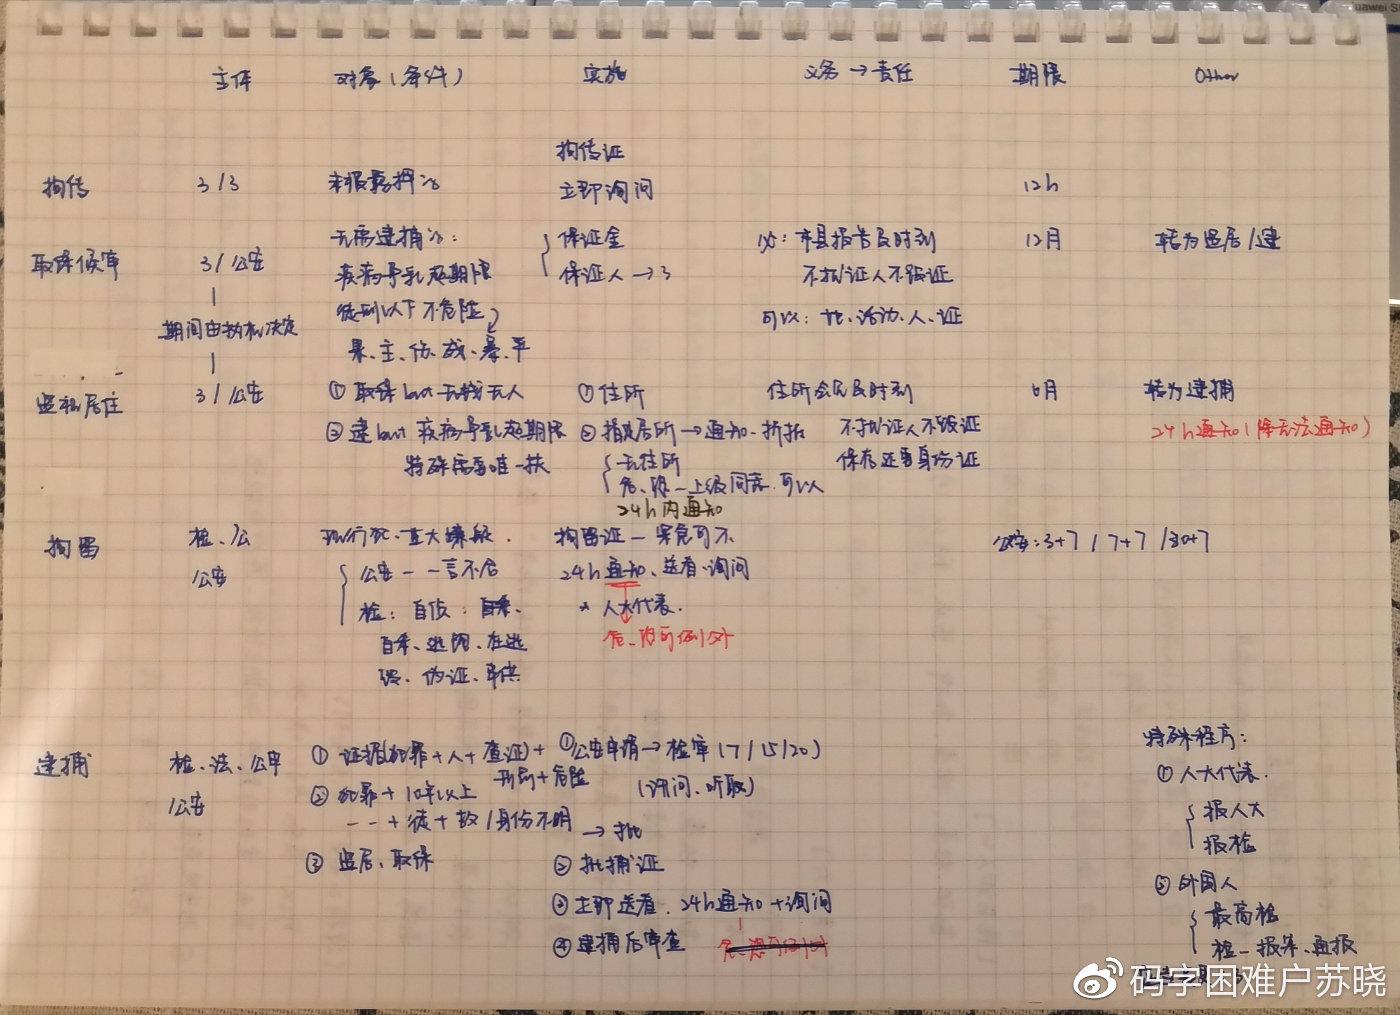 主体 对象（条件） 实施 义务→责任 期限 Other
拘传证
拘传 3/3 未被羁押 立即询问 12h
无需逮捕 保证金 市县报告及时到 12月 转为监居/逮
取保候审 3/公安 疾病孕乳超期限 保证人→3 不扰证人不毁证
期间由执机决定 徒刑以下不危险 可以：
累、主、伤
监视居住 3/公安 ①取保but无钱无人 ①住所 住所会见及时到 6月 转为逮捕
②逮but疾病孕乳超期限 ②指定居所→通知、折抵 不扰证人不毁证 24h通知（除无法通知）
特殊需要唯一扶 无住所 保存证身份证
上级同意可以
24h内通知
拘留 检、公 现行犯、重大嫌疑 拘留证—紧急可不 公安：3+7/7+7/30+7
/公安 公安 24h通知、送看、询问
检：自侦：自杀、 *人大代表
自杀、逃跑、在逃 可例外
毁、伪证、串供
逮捕 检、法、公 ①证据（犯罪+人+查证）+ ①公安申请→检审（7/15/20） 特殊程序：
刑罚+危险 （询问、听取） ①人大代表
/公安 ②犯罪+10年以上 报人大
+徒+故/身份不明 →批 报检
③监居、取保 ②批捕证 ②外国人
③立即送看、24h通知+询问 最高检
④逮捕后审查 检—报
码字困难户苏晓